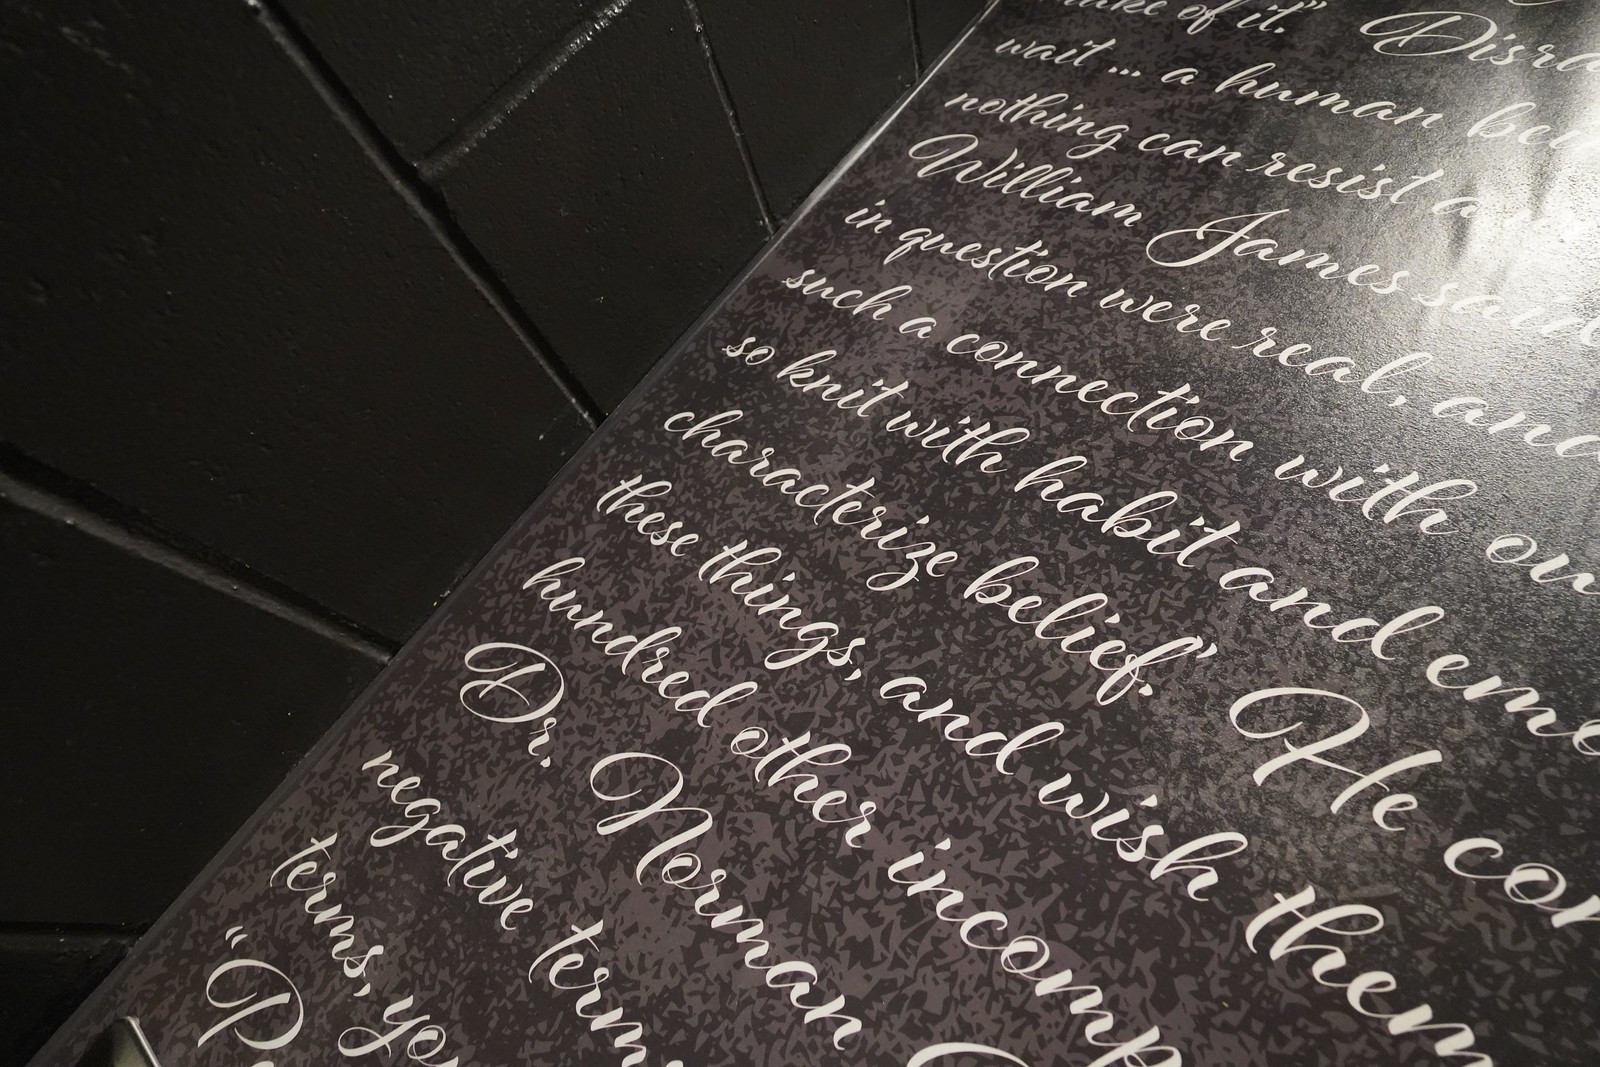 make of it." Disra
wait ... a human bei
nothing can resist a
William James said
in question were real, and
such a connection with ou
so knit with habit and emo
characterize belief." He con
these things, and wish them
hundred other incomp
Dr. Norman
negative term
terms, you
"P